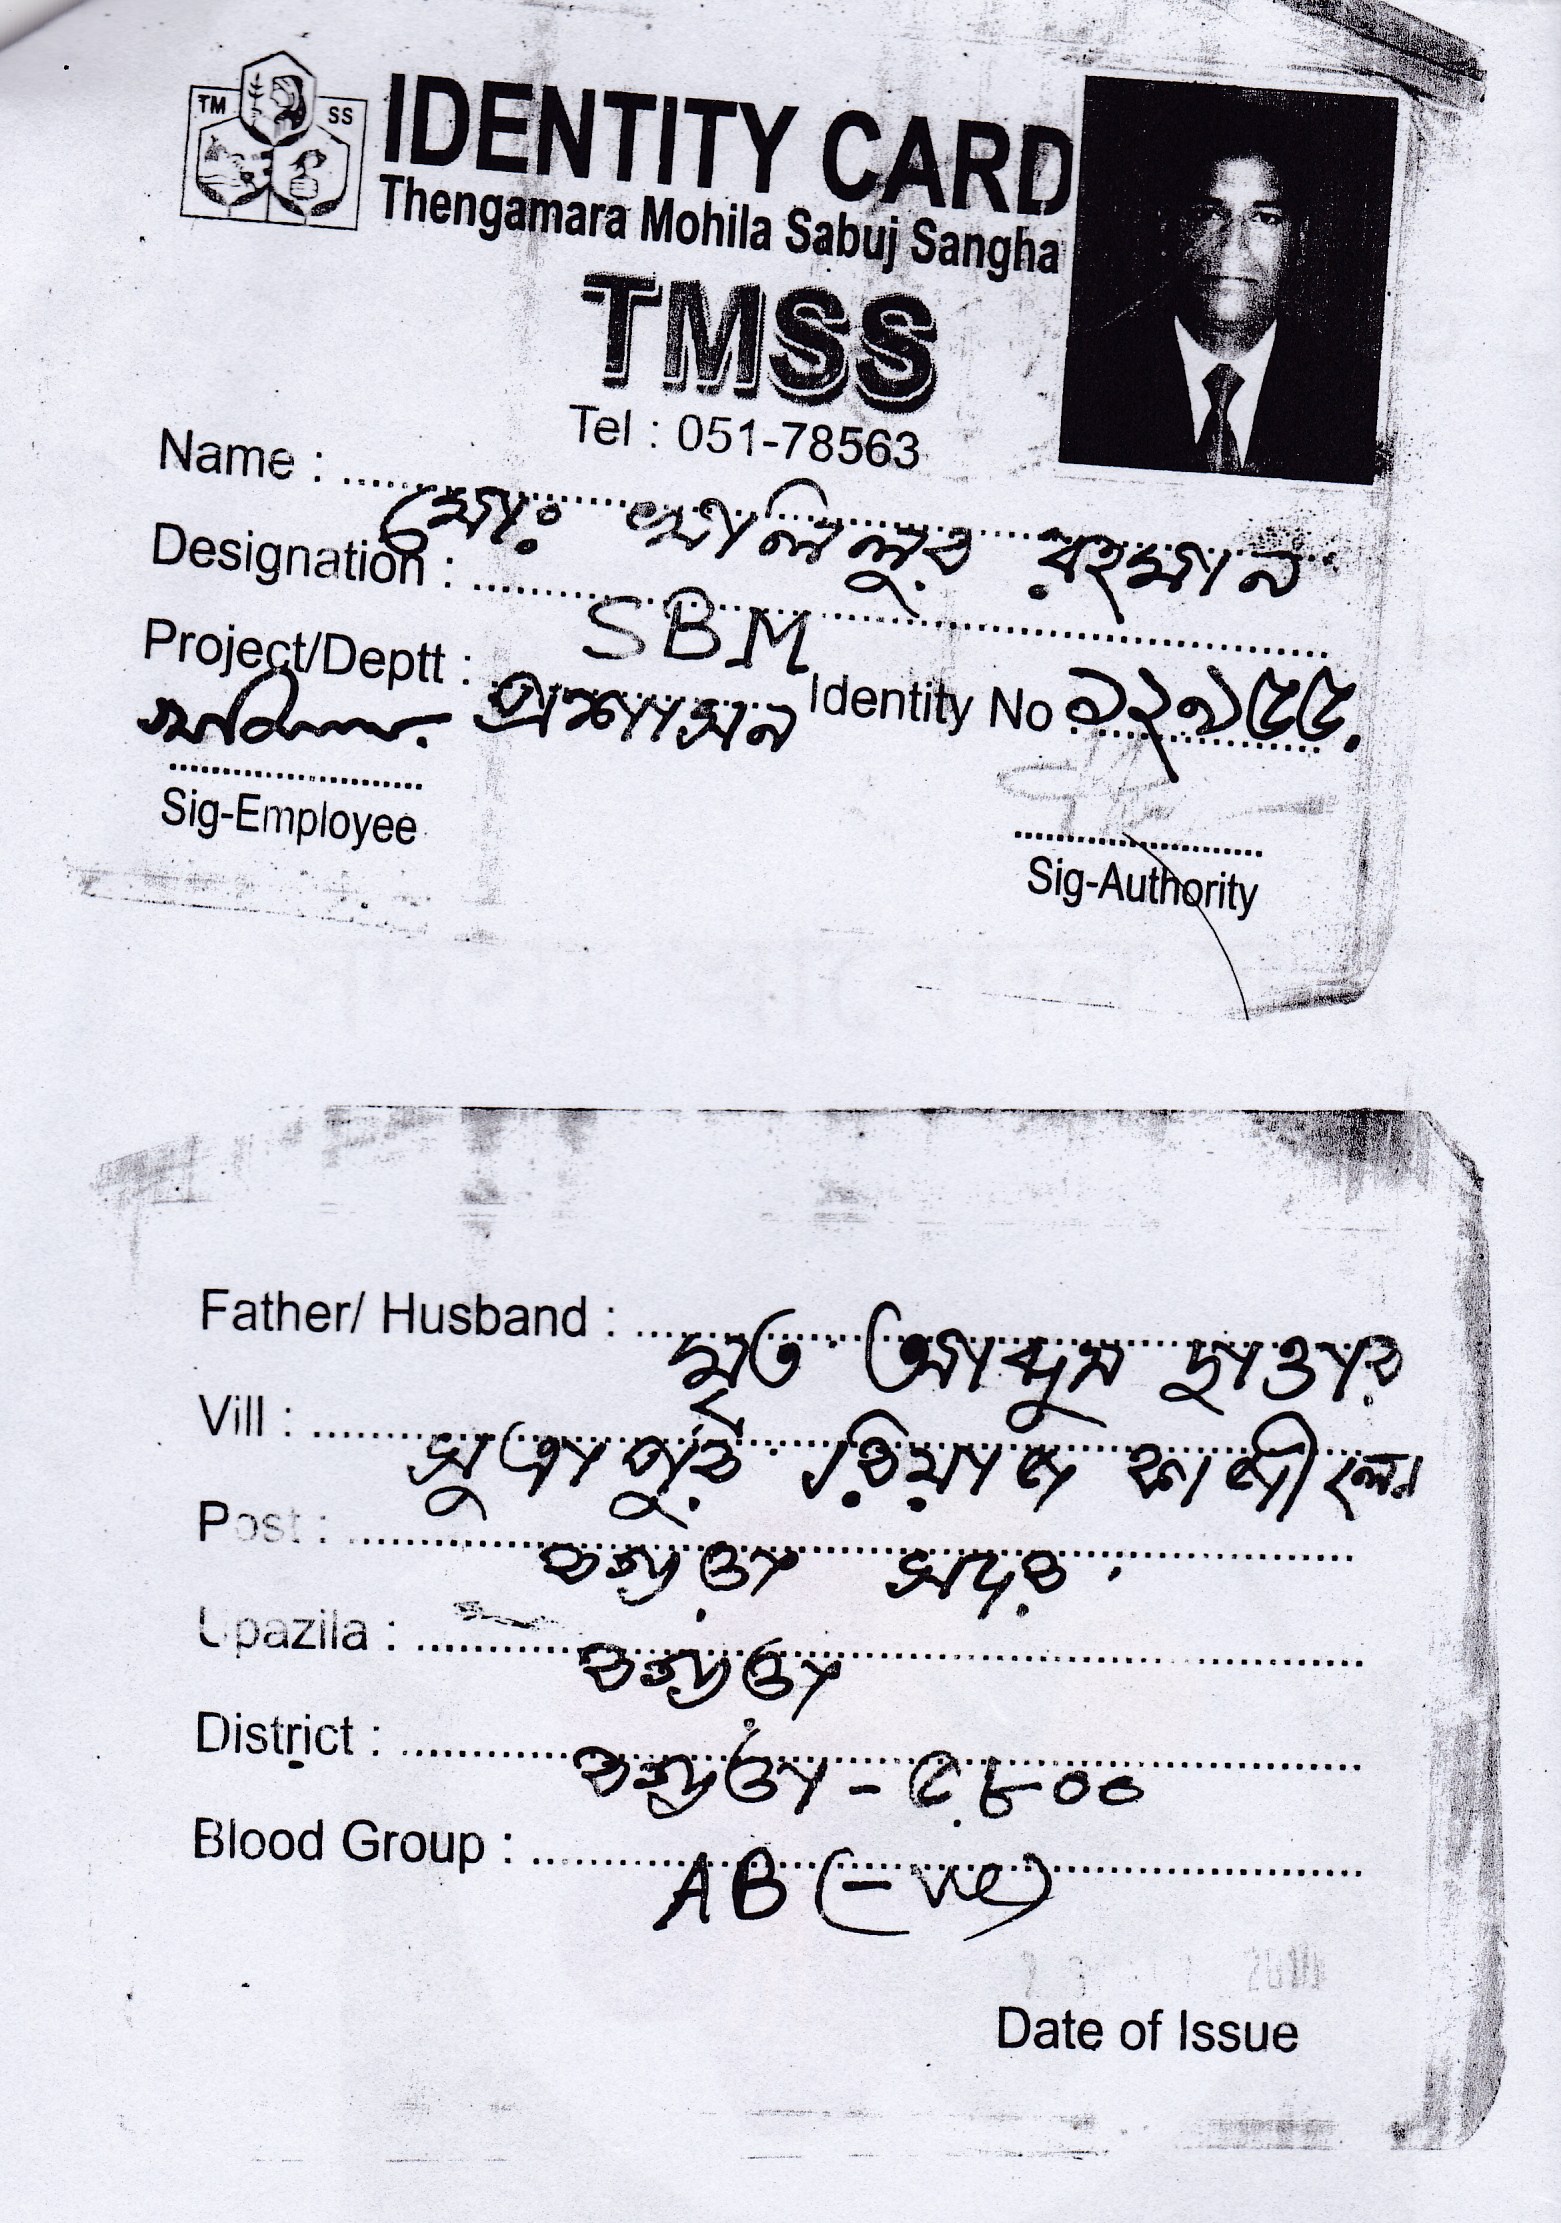 TM SS
IDENTITY CARD
Thengamara Mohila Sabuj Sangha
TMSS
Tel : 051-78563
Name : মোঃ খলিলুর রহমান
Designation : SBM
Project/Deptt : প্রশাসন Identity No ১২৯৫৫.
Sig-Employee
Sig-Authority
Father/ Husband : মৃত আব্দুস ছাত্তার
Vill : সুত্রাপুর রিয়াজ কাজী লেন
Post : বগুড়া সদর
Upazila : বগুড়া
District : বগুড়া - ৫৮০০
Blood Group : AB (-ve)
Date of Issue